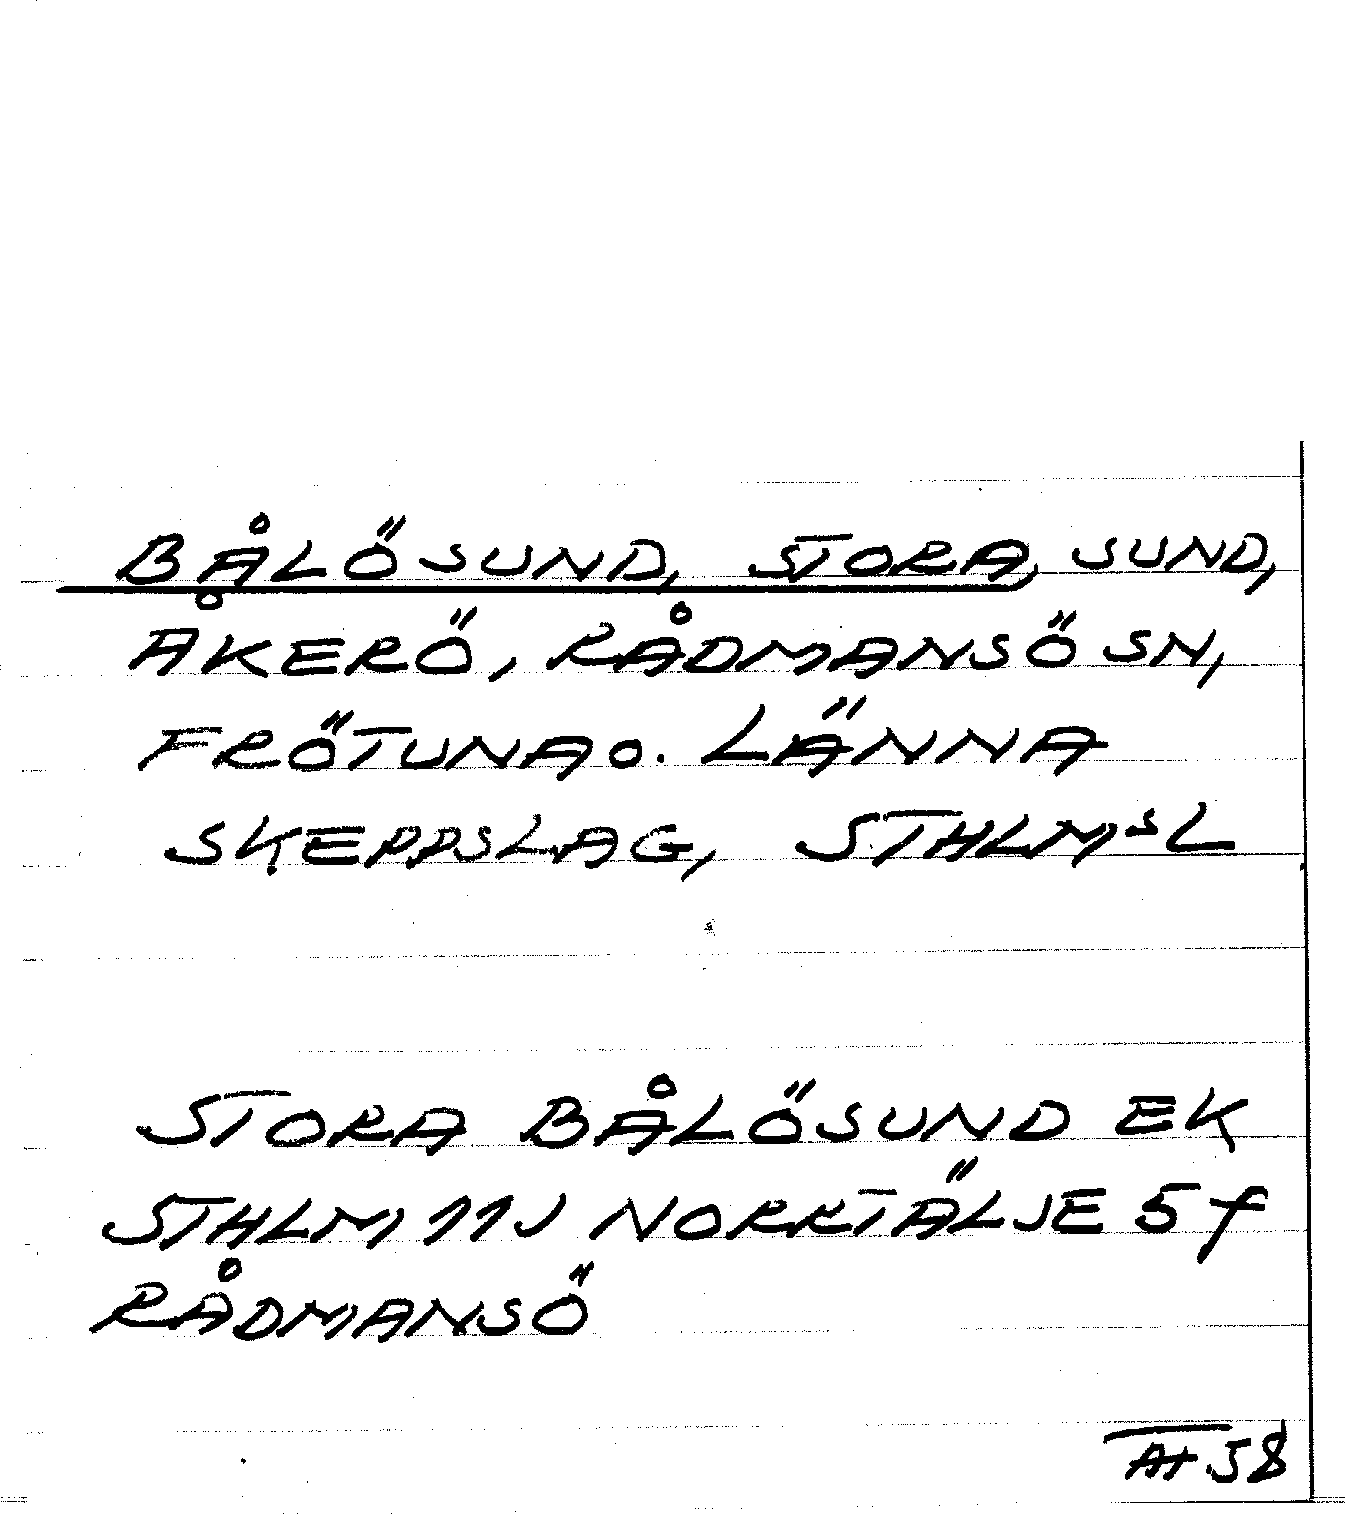 BÅLÖSUND, STORA, SUND,
ÅKERÖ, RÅDMANSÖ SN,
FRÖTUNA O. LÄNNA
SKEPPSLAG, STHLMSL
STORA BÅLÖSUND EK
STHLM 11J NORRTÄLJE 5f
RÅDMANSÖ
58